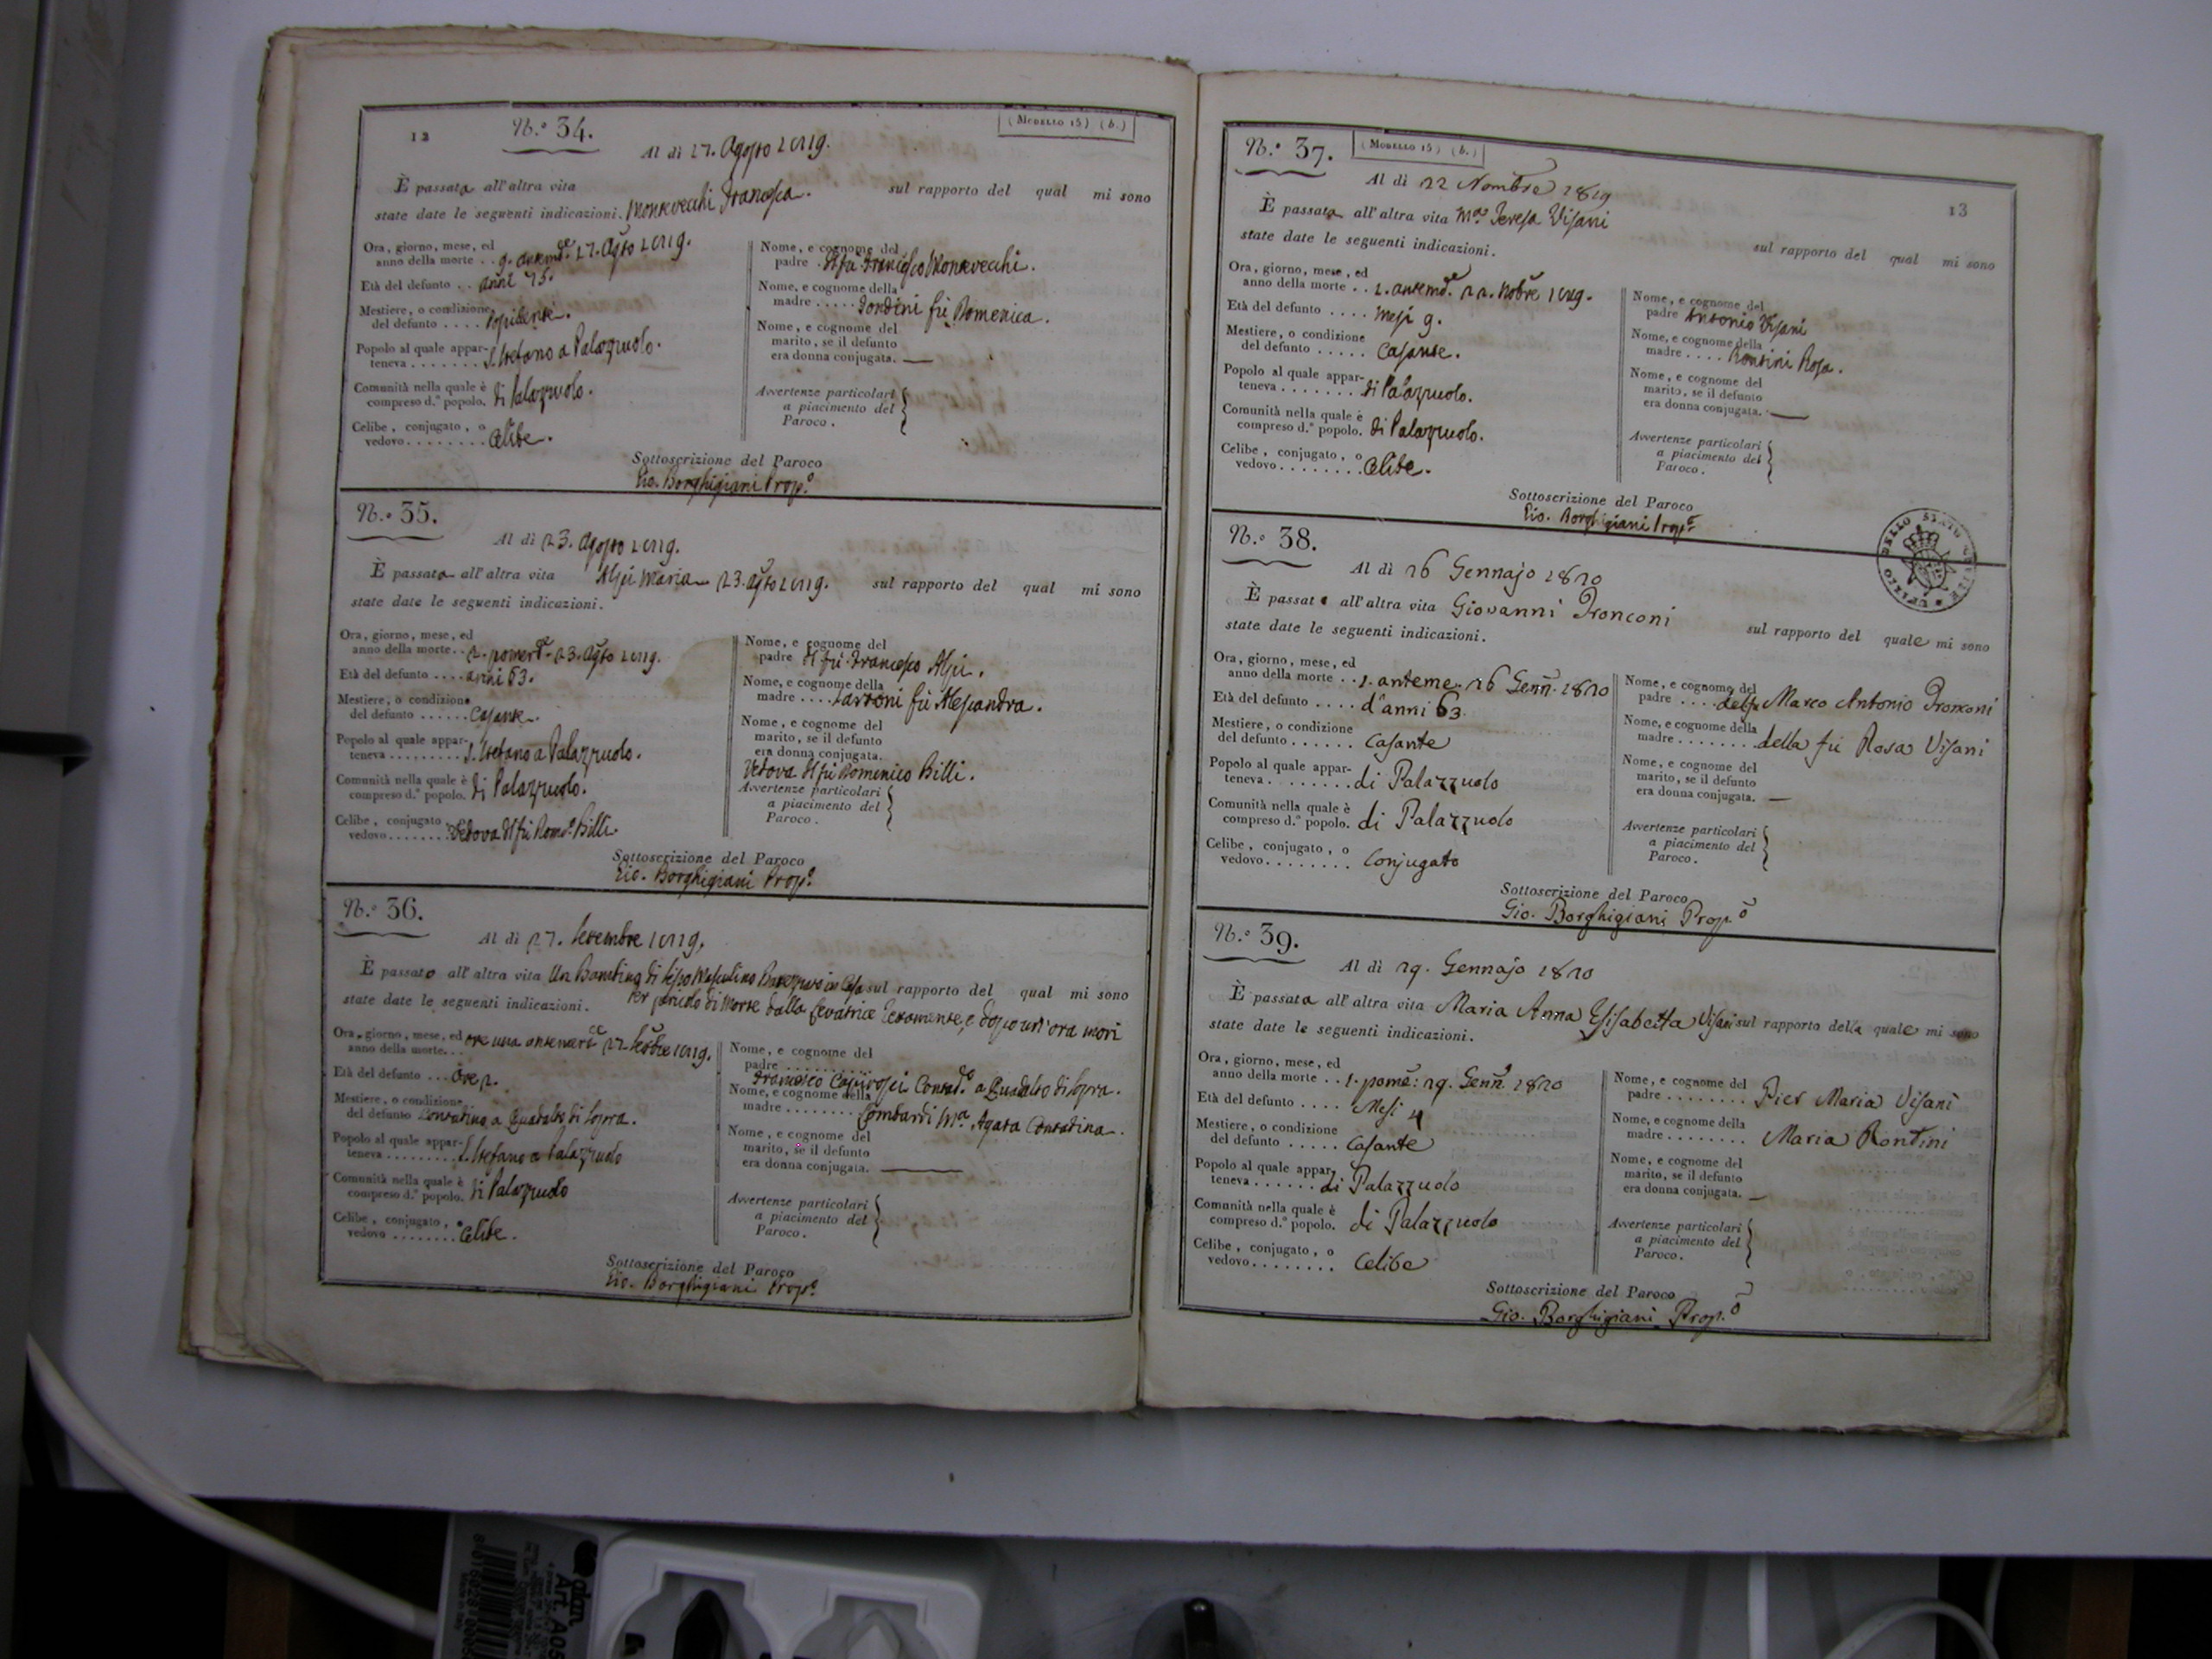 12
N.° 34.
(Modello 15) (b.)
Al dì 17. Agosto 1819.
È passata all'altra vita sul rapporto del qual mi sono
state date le seguenti indicazioni. Montevecchi Francesca.
Ora, giorno, mese, ed
anno della morte . . 9. antemd.e 17. Agsto 1819.
Età del defunto . . anni 75.
Mestiere, o condizione
del defunto . . . .
Popolo al quale appar-
teneva . . . . . . . S. Stefano a Palazzuolo.
Comunità nella quale è
compreso d.° popolo. di Palazzuolo.
Celibe, conjugato, o
vedovo . . . . . . . . Celibe.
Nome, e cognome del
padre . del fù Francesco Montevecchi.
Nome, e cognome della
madre . . . . . fù Domenica.
Nome, e cognome del
marito, se il defunto
era donna conjugata. —
Avvertenze particolari
a piacimento del
Paroco.
Sottoscrizione del Paroco
Gio. Borghigiani Prop.°
N.° 35.
Al dì 23. Agosto 1819.
È passata all'altra vita Alpi Maria 23. Agsto 1819. sul rapporto del qual mi sono
state date le seguenti indicazioni.
Ora, giorno, mese, ed
anno della morte . . 2. pomerd.e 23. Agsto 1819.
Età del defunto . . . . anni 63.
Mestiere, o condizione
del defunto . . . . . . Casante.
Popolo al quale appar-
teneva . . . . . . . . . S. Stefano a Palazzuolo.
Comunità nella quale è
compreso d.° popolo. di Palazzuolo.
Celibe, conjugato, o
vedovo . . . . . . . . Vedova del fù Dom.° Billi.
Nome, e cognome del
padre del fù Francesco Alpi.
Nome, e cognome della
madre . . . . fù Alessandra.
Nome, e cognome del
marito, se il defunto
era donna conjugata.
Vedova del fù Domenico Billi.
Avvertenze particolari
a piacimento del
Paroco.
Sottoscrizione del Paroco
Gio. Borghigiani Prop.°
N.° 36.
Al dì 27. Settembre 1819.
È passato all'altra vita Un Bambino di sesso Masculino Battezzato in Casa sul rapporto del qual mi sono
state date le seguenti indicazioni. per pericolo di Morte dalla Levatrice e dopo un'ora morì
Ora, giorno, mese, ed
anno della morte. . . ore una antemerd.e 27 Settbre 1819.
Età del defunto . . . Ore 2.
Mestiere, o condizione
del defunto Contadino a Quadalto di Sopra.
Popolo al quale appar-
teneva . . . . . . . . . S. Stefano a Palazzuolo
Comunità nella quale è
compreso d.° popolo. di Palazzuolo
Celibe, conjugato, o
vedovo . . . . . . . . Celibe.
Nome, e cognome del
padre . . . . . . . . .
Francesco a Quadalto di Sopra.
Nome, e cognome della
madre . . . . . . . . . Lombardi M.a Agata Contadina.
Nome, e cognome del
marito, se il defunto
era donna conjugata. —
Avvertenze particolari
a piacimento del
Paroco.
Sottoscrizione del Paroco
Gio. Borghigiani Prop.°
13
N.° 37.
(Modello 15) (b.)
Al dì 22 Nombre 1819
È passata all'altra vita M.a Teresa Visani
sul rapporto del qual mi sono
state date le seguenti indicazioni.
Ora, giorno, mese, ed
anno della morte . . 1. antemd.e 22. Nobre 1819.
Età del defunto . . . . Mesi 9.
Mestiere, o condizione
del defunto . . . . . Casante.
Popolo al quale appar-
teneva . . . . . . . di Palazzuolo.
Comunità nella quale è
compreso d.° popolo. di Palazzuolo.
Celibe, conjugato, o
vedovo . . . . . . . . Celibe.
Nome, e cognome del
padre Antonio Visani
Nome, e cognome della
madre . . . . Rontini Rosa.
Nome, e cognome del
marito, se il defunto
era donna conjugata. —
Avvertenze particolari
a piacimento del
Paroco.
Sottoscrizione del Paroco
Gio. Borghigiani Prop.°
UFIZIO DELLO STATO CIVILE
N.° 38.
Al dì 26 Gennajo 1820
È passato all'altra vita Giovanni Tronconi
sul rapporto del quale mi sono
state date le seguenti indicazioni.
Ora, giorno, mese, ed
anno della morte . . 1. anteme. 26 Genn. 1820
Età del defunto . . . . d'anni 63.
Mestiere, o condizione
del defunto . . . . . . Casante
Popolo al quale appar-
teneva . . . . . . . . di Palazzuolo
Comunità nella quale è
compreso d.° popolo. di Palazzuolo
Celibe, conjugato, o
vedovo . . . . . . . . Conjugato
Nome, e cognome del
padre . . . . del fu Marco Antonio Tronconi
Nome, e cognome della
madre . . . . . . . . della fù Rosa Visani
Nome, e cognome del
marito, se il defunto
era donna conjugata. —
Avvertenze particolari
a piacimento del
Paroco.
Sottoscrizione del Paroco
Gio. Borghigiani Prop.°
N.° 39.
Al dì 29. Gennajo 1820
È passata all'altra vita Maria Anna Elisabetta Visani sul rapporto della quale mi sono
state date le seguenti indicazioni.
Ora, giorno, mese, ed
anno della morte . . 1. pome: 29. Genn. 1820
Età del defunto . . . . Mesi 4
Mestiere, o condizione
del defunto . . . . . Casante
Popolo al quale appar-
teneva . . . . . . di Palazzuolo
Comunità nella quale è
compreso d.° popolo. di Palazzuolo
Celibe, conjugato, o
vedovo . . . . . . . . Celibe
Nome, e cognome del
padre . . . . . . . . Pier Maria Visani
Nome, e cognome della
madre . . . . . . . . Maria Rontini
Nome, e cognome del
marito, se il defunto
era donna conjugata. —
Avvertenze particolari
a piacimento del
Paroco.
Sottoscrizione del Paroco
Gio. Borghigiani Prop.°